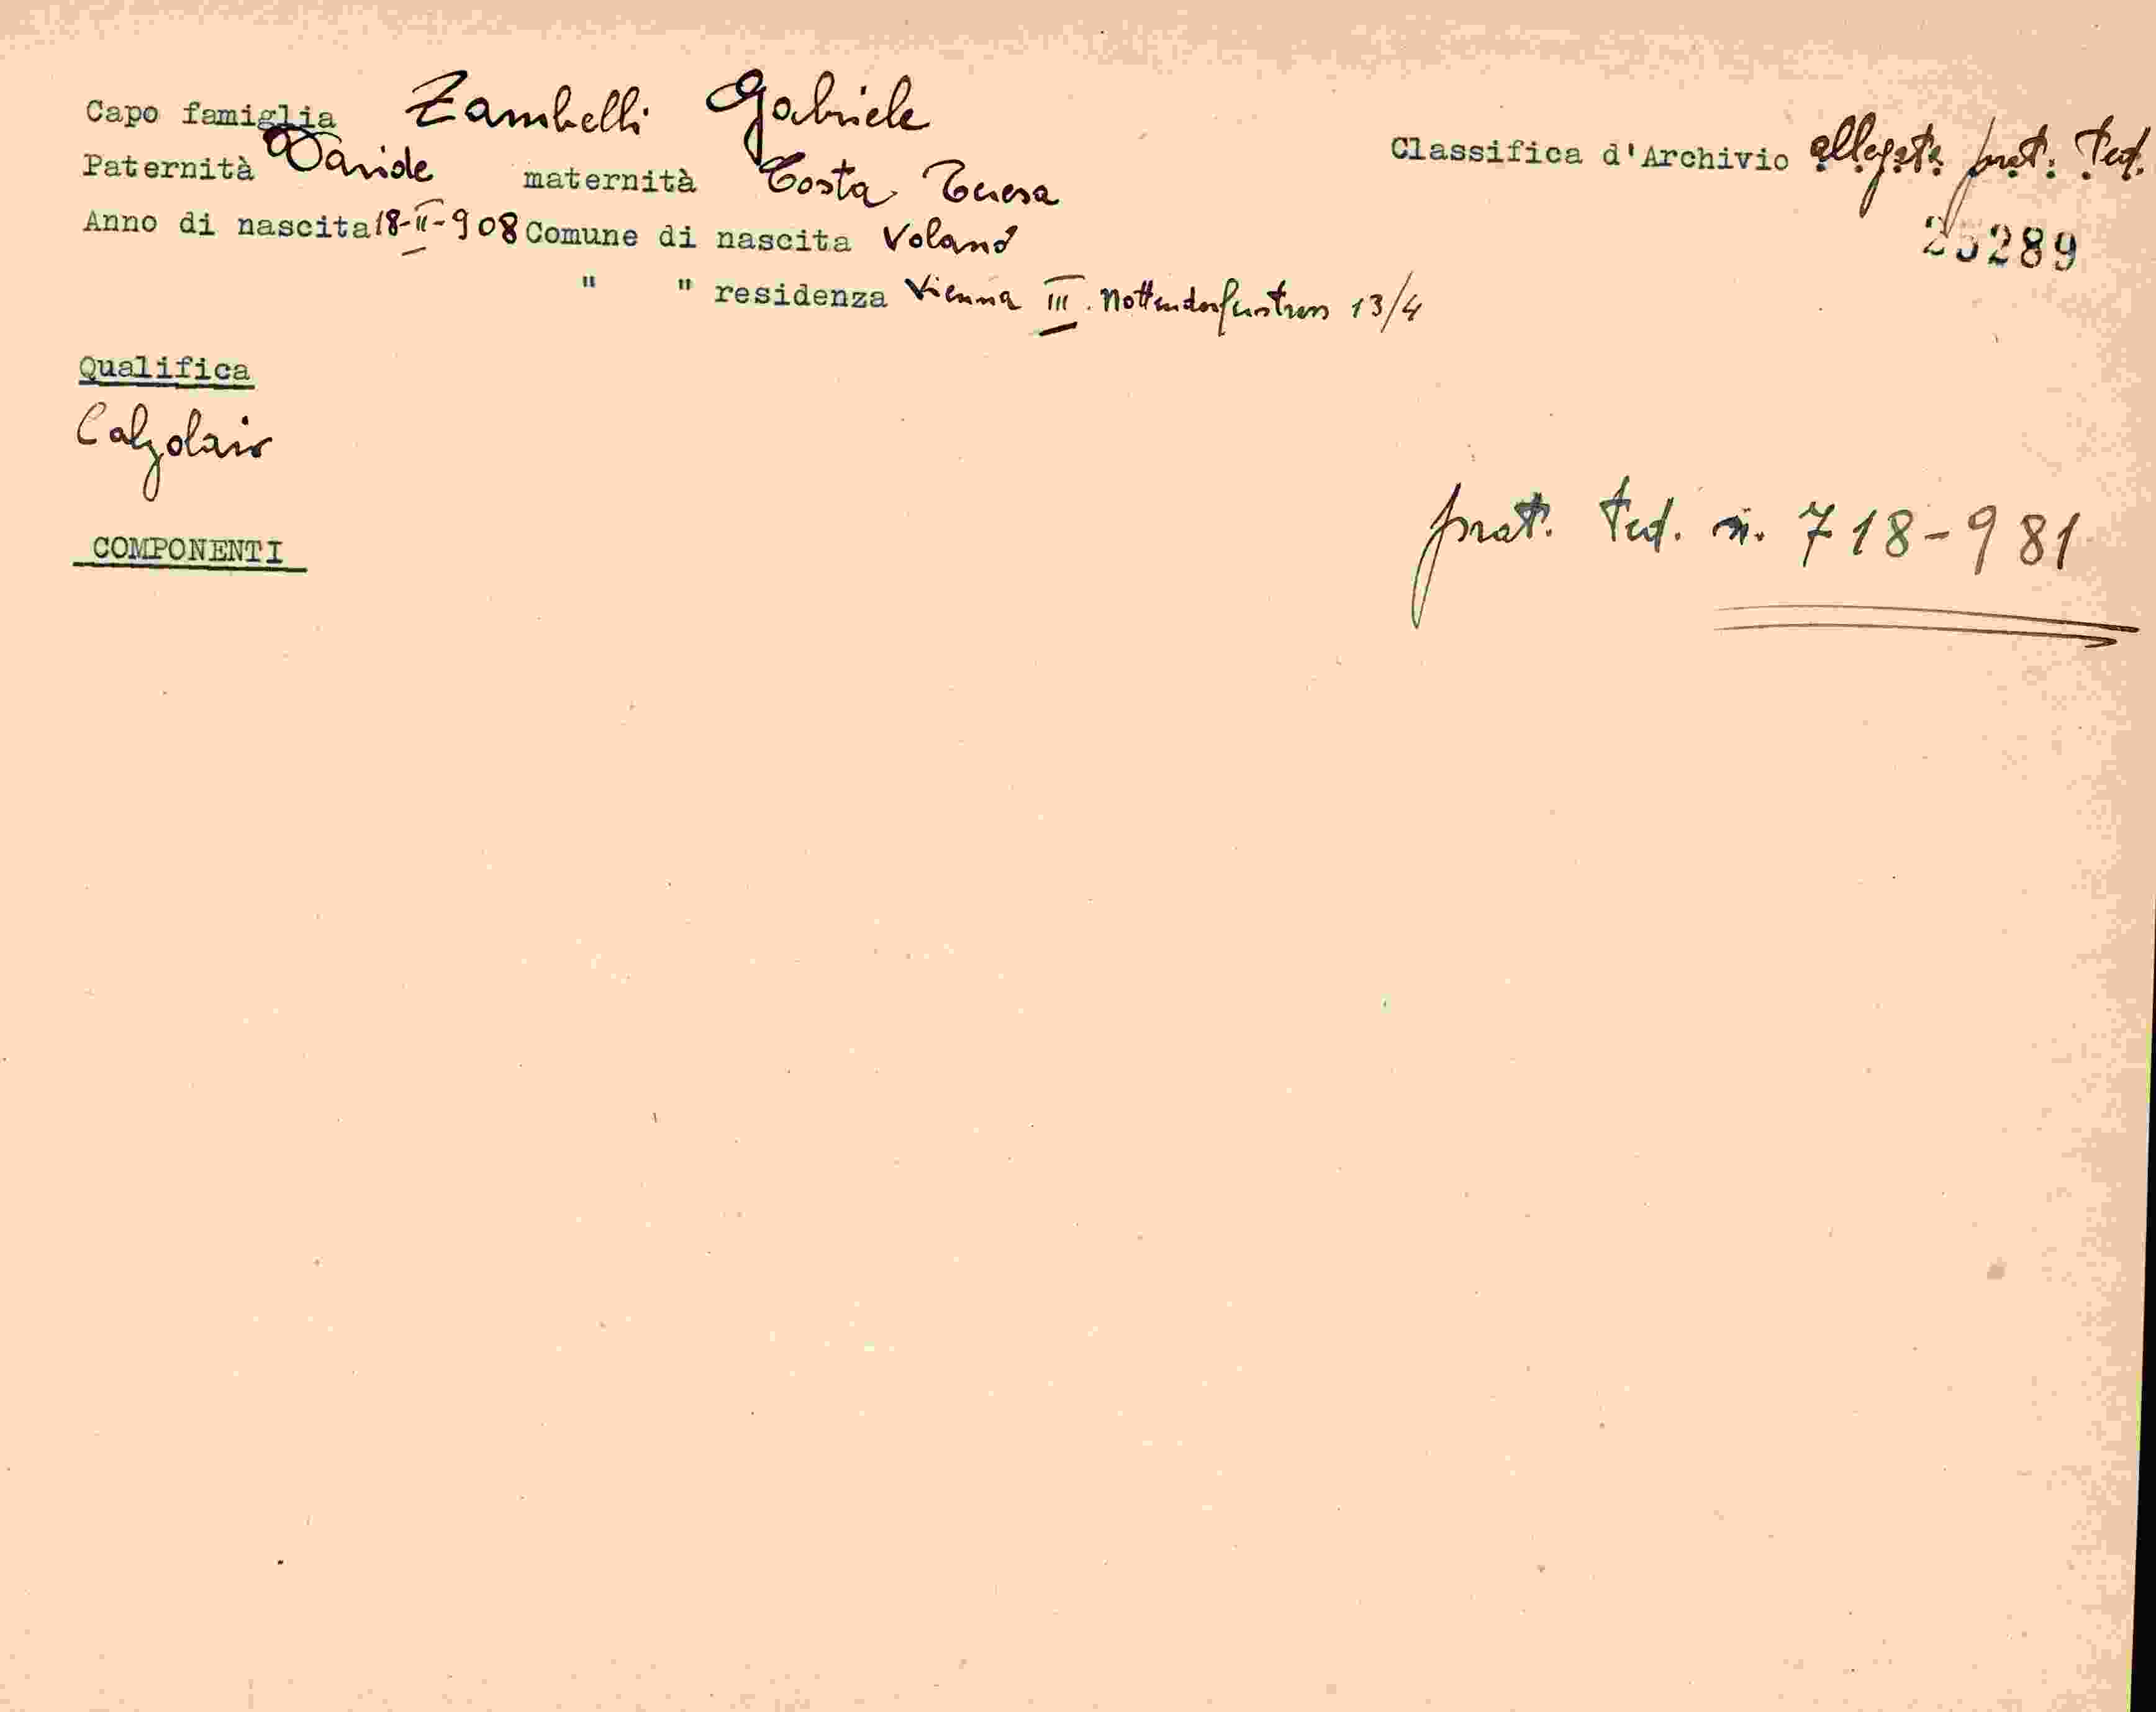 Capo famiglia Zambelli Gabriele
Paternità Davide maternità Tosta Teresa
Anno di nascita 18-II-908 Comune di nascita Volano
" " residenza Vienna III. Nottendorferstrass 13/4
Classifica d'Archivio allegata prat. Ted.
25289
Qualifica
Calzolaio
prat. Ted. n. 718-981
COMPONENTI